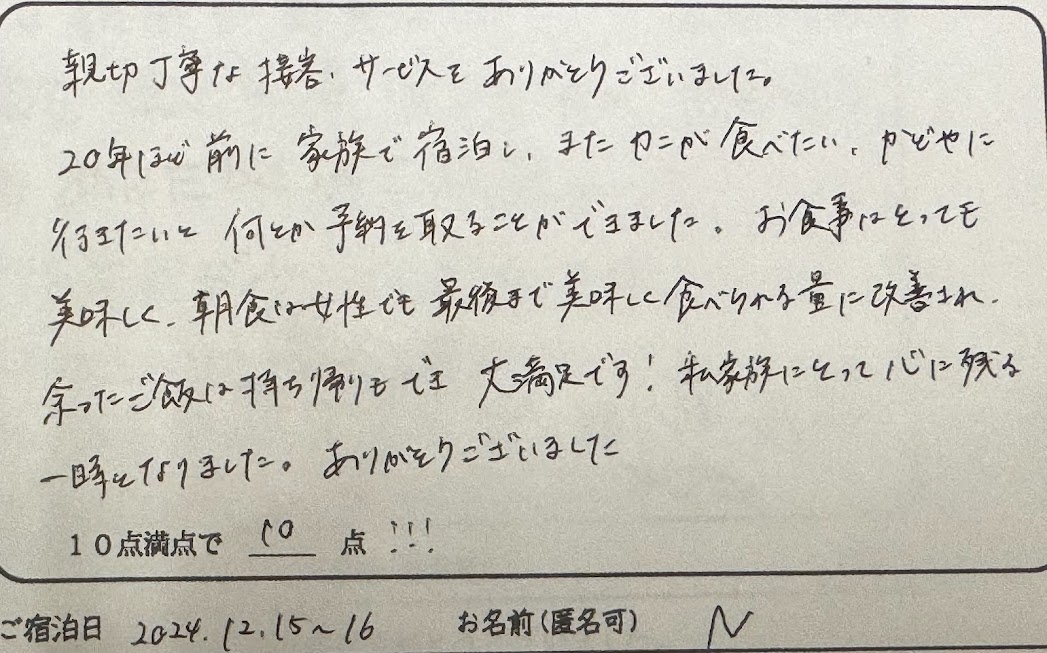 親切丁寧な接客、サービスをありがとうございました。
20年ほど前に家族で宿泊し、またカニが食べたい、かどやに
行きたいと何とか予約を取ることができました。お食事はとっても
美味しく、朝食は女性でも最後まで美味しく食べられる量に改善され、
余ったご飯は持ち帰りもでき大満足です！私家族にとって心に残る
一時となりました。ありがとうございました
10点満点で 10 点 !!!
ご宿泊日 2024.12.15～16 お名前(匿名可) N